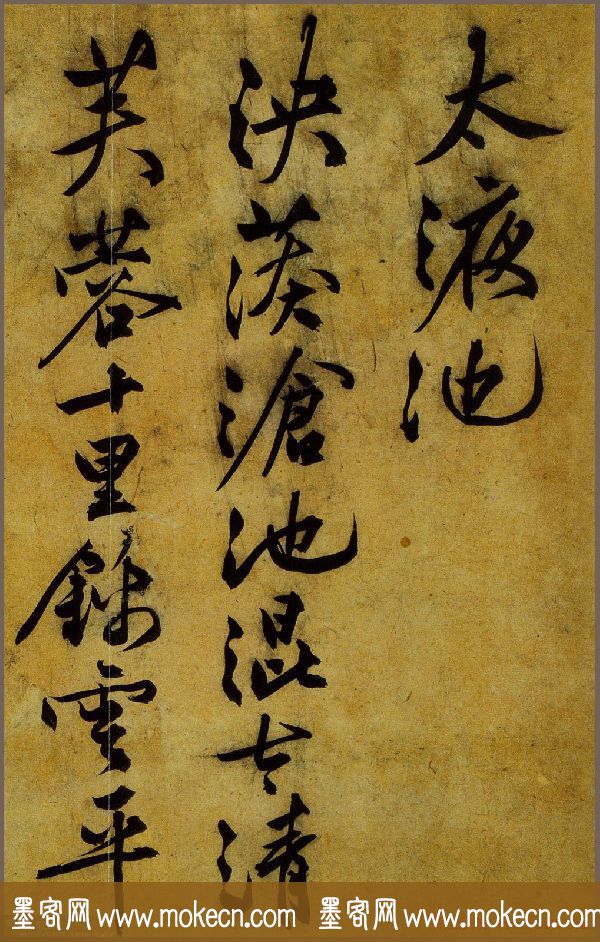 太液池
泱漭滄池混太清
芙蓉十里錦雲平
墨客网 www.mokecn.com 墨客网 www.mokecn.com